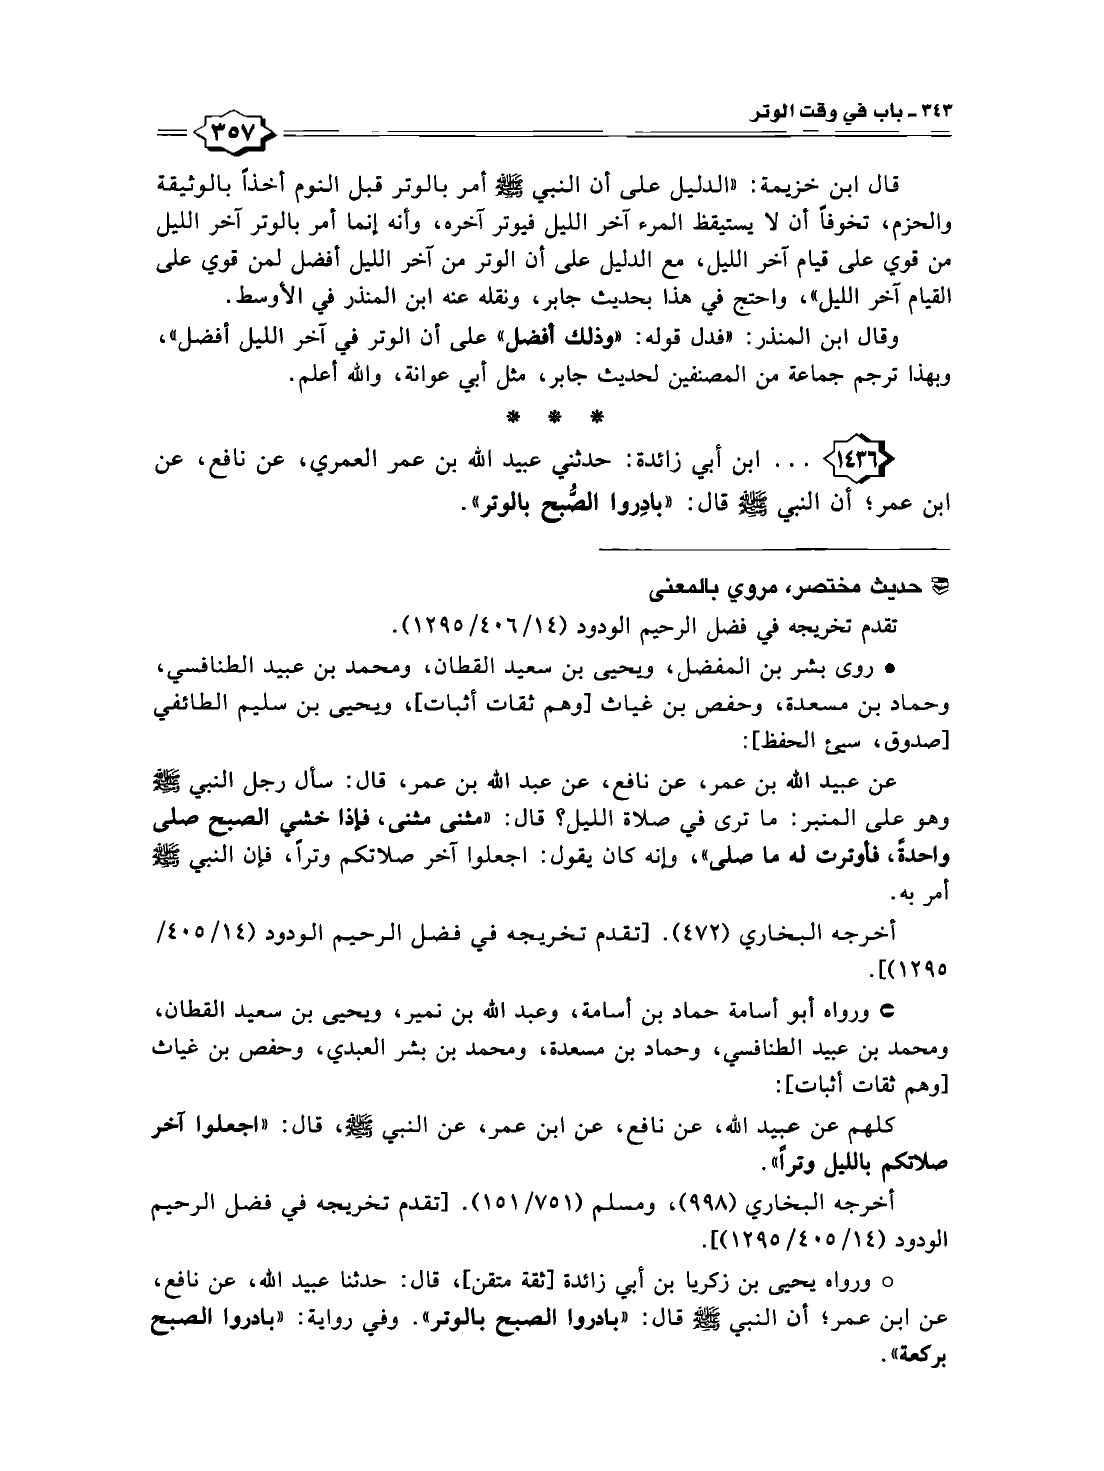 ٣٤٣ - باب في وقت الوتر
٣٥٧
قال ابن خزيمة: «الدليل على أن النبي ﷺ أمر بالوتر قبل النوم أخذاً بالوثيقة
والحزم، تخوفاً أن لا يستيقظ المرء آخر الليل فيوتر آخره، وأنه إنما أمر بالوتر آخر الليل
من قوي على قيام آخر الليل، مع الدليل على أن الوتر من آخر الليل أفضل لمن قوي على
القيام آخر الليل»، واحتج في هذا بحديث جابر، ونقله عنه ابن المنذر في الأوسط.
وقال ابن المنذر: «فدل قوله: «وذلك أفضل» على أن الوتر في آخر الليل أفضل»،
وبهذا ترجم جماعة من المصنفين لحديث جابر، مثل أبي عوانة، والله أعلم.
* * *
١٤٣٦ ... ابن أبي زائدة: حدثني عبيد الله بن عمر العمري، عن نافع، عن
ابن عمر؛ أن النبي ﷺ قال: «بادِروا الصُّبح بالوتر».
حديث مختصر، مروي بالمعنى
تقدم تخريجه في فضل الرحيم الودود (١٤/٤٠٦/١٢٩٥).
• روى بشر بن المفضل، ويحيى بن سعيد القطان، ومحمد بن عبيد الطنافسي،
وحماد بن مسعدة، وحفص بن غياث [وهم ثقات أثبات]، ويحيى بن سليم الطائفي
[صدوق، سيئ الحفظ]:
عن عبيد الله بن عمر، عن نافع، عن عبد الله بن عمر، قال: سأل رجل النبي ﷺ
وهو على المنبر: ما ترى في صلاة الليل؟ قال: «مثنى مثنى، فإذا خشي الصبح صلى
واحدةً، فأوترت له ما صلى»، وإنه كان يقول: اجعلوا آخر صلاتكم وتراً، فإن النبي ﷺ
أمر به.
أخرجه البخاري (٤٧٢). [تقدم تخريجه في فضل الرحيم الودود (١٤/٤٠٥/
١٢٩٥)].
⊂ ورواه أبو أسامة حماد بن أسامة، وعبد الله بن نمير، ويحيى بن سعيد القطان،
ومحمد بن عبيد الطنافسي، وحماد بن مسعدة، ومحمد بن بشر العبدي، وحفص بن غياث
[وهم ثقات أثبات]:
كلهم عن عبيد الله، عن نافع، عن ابن عمر، عن النبي ﷺ، قال: «اجعلوا آخر
صلاتكم بالليل وتراً».
أخرجه البخاري (٩٩٨)، ومسلم (١٥١/٧٥١). [تقدم تخريجه في فضل الرحيم
الودود (١٤/٤٠٥/١٢٩٥)].
○ ورواه يحيى بن زكريا بن أبي زائدة [ثقة متقن]، قال: حدثنا عبيد الله، عن نافع،
عن ابن عمر؛ أن النبي ﷺ قال: «بادروا الصبح بالوتر». وفي رواية: «بادروا الصبح
بركعة».